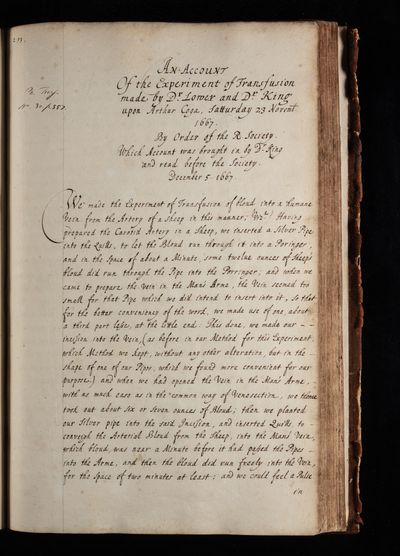 233.
Ph. Trans.
N. 30. p. 557.
An Account
Of the Experiment of Transfusion
made by Dr. Lower and Dr. King
upon Arthur Coga, Satturday 23 Novemb.
1667.
By Order of the R. Society.
Which Account was brought in by Dr. King
and read before the Society.
December 5. 1667.
We made the Experiment of Transfusion of bloud into a Humane
Vein from the Artery of a Sheep in this manner; Vizt. Having
prepared the Carotid Artery in a Sheep, we inserted a Silver Pipe
into the Quills, to let the Bloud run through it into a Poringer,
and in the space of about a Minute, some twelve ounces of Sheeps
bloud did run through the Pipe into the Porringer; and when we
came to prepare the Vein in the Mans Arme, the Vein seemed too
small for that Pipe which we did intend to insert into it, so that
for the better conveniency of the word, we made use of one about
a third part less, at the little end. This done, we made our - -
incision into the Vein, (as before in our Method for this Experiment,
which Method we kept, without any other alteration, but in the -
shape of one of our Pipes, which we found more convenient for our
purpose.) and when we had opened the Vein in the Mans Arme,
with as much ease as in the common way of Venesection, we thence
took out about six or seven ounces of Bloud; then we planted
our Silver pipe into the said Incision, and inserted Quills to -
conveigh the Arterial Bloud from the Sheep, into the Mans Vein,
which bloud, was near a Minute before it had passed the Pipes -
into the Arme, and then the bloud did run freely into the Vein,
for the space of two minutes at least; and we could feel a Pulse
in